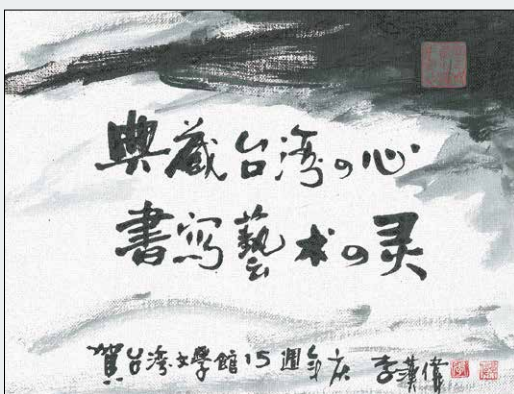 典藏台湾の心
書寫藝术の灵
賀台湾文學館15週年庆 李漢偉